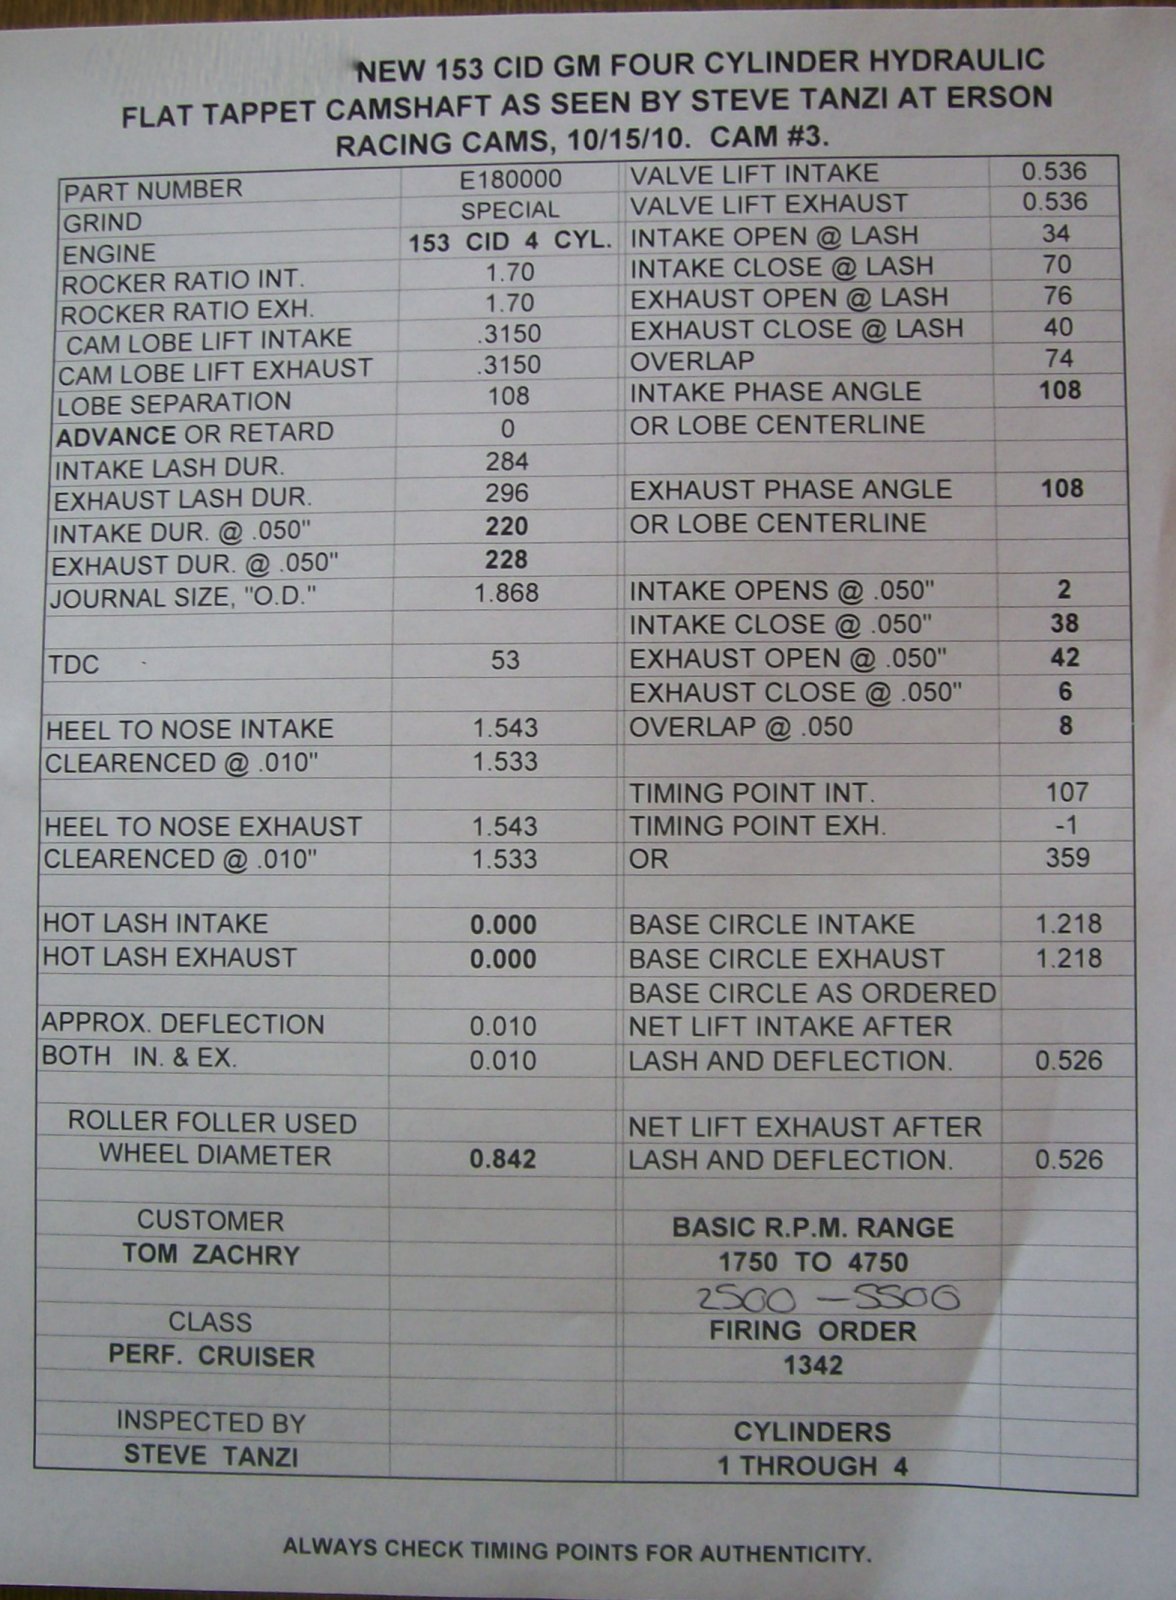 NEW 153 CID GM FOUR CYLINDER HYDRAULIC
FLAT TAPPET CAMSHAFT AS SEEN BY STEVE TANZI AT ERSON
RACING CAMS, 10/15/10. CAM #3.
PART NUMBER E180000 VALVE LIFT INTAKE 0.536
GRIND SPECIAL VALVE LIFT EXHAUST 0.536
ENGINE 153 CID 4 CYL. INTAKE OPEN @ LASH 34
ROCKER RATIO INT. 1.70 INTAKE CLOSE @ LASH 70
ROCKER RATIO EXH. 1.70 EXHAUST OPEN @ LASH 76
CAM LOBE LIFT INTAKE .3150 EXHAUST CLOSE @ LASH 40
CAM LOBE LIFT EXHAUST .3150 OVERLAP 74
LOBE SEPARATION 108 INTAKE PHASE ANGLE 108
ADVANCE OR RETARD 0 OR LOBE CENTERLINE
INTAKE LASH DUR. 284
EXHAUST LASH DUR. 296 EXHAUST PHASE ANGLE 108
INTAKE DUR. @ .050" 220 OR LOBE CENTERLINE
EXHAUST DUR. @ .050" 228
JOURNAL SIZE, "O.D." 1.868 INTAKE OPENS @ .050" 2
INTAKE CLOSE @ .050" 38
TDC 53 EXHAUST OPEN @ .050" 42
EXHAUST CLOSE @ .050" 6
HEEL TO NOSE INTAKE 1.543 OVERLAP @ .050 8
CLEARENCED @ .010" 1.533
TIMING POINT INT. 107
HEEL TO NOSE EXHAUST 1.543 TIMING POINT EXH. -1
CLEARENCED @ .010" 1.533 OR 359
HOT LASH INTAKE 0.000 BASE CIRCLE INTAKE 1.218
HOT LASH EXHAUST 0.000 BASE CIRCLE EXHAUST 1.218
BASE CIRCLE AS ORDERED
APPROX. DEFLECTION 0.010 NET LIFT INTAKE AFTER
BOTH IN. & EX. 0.010 LASH AND DEFLECTION. 0.526
ROLLER FOLLER USED NET LIFT EXHAUST AFTER
WHEEL DIAMETER 0.842 LASH AND DEFLECTION. 0.526
CUSTOMER BASIC R.P.M. RANGE
TOM ZACHRY 1750 TO 4750
2500 - 5500
CLASS FIRING ORDER
PERF. CRUISER 1342
INSPECTED BY CYLINDERS
STEVE TANZI 1 THROUGH 4
ALWAYS CHECK TIMING POINTS FOR AUTHENTICITY.